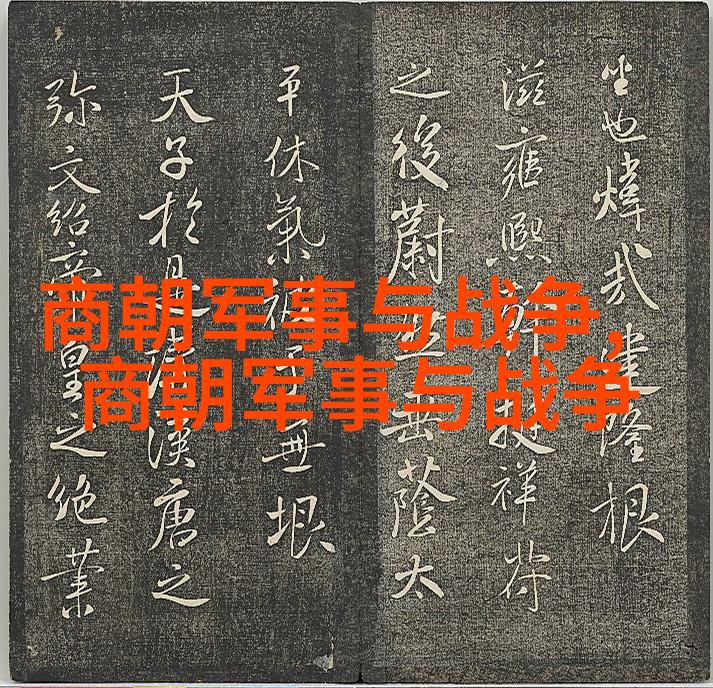 商朝军事与战争,
商朝军事与战争
也煒哉建隆根
滋雍熙祥符
之後蔚蔭太
平休氣被無垠
天子於是漢唐之
弥文紹帝皇之絶業